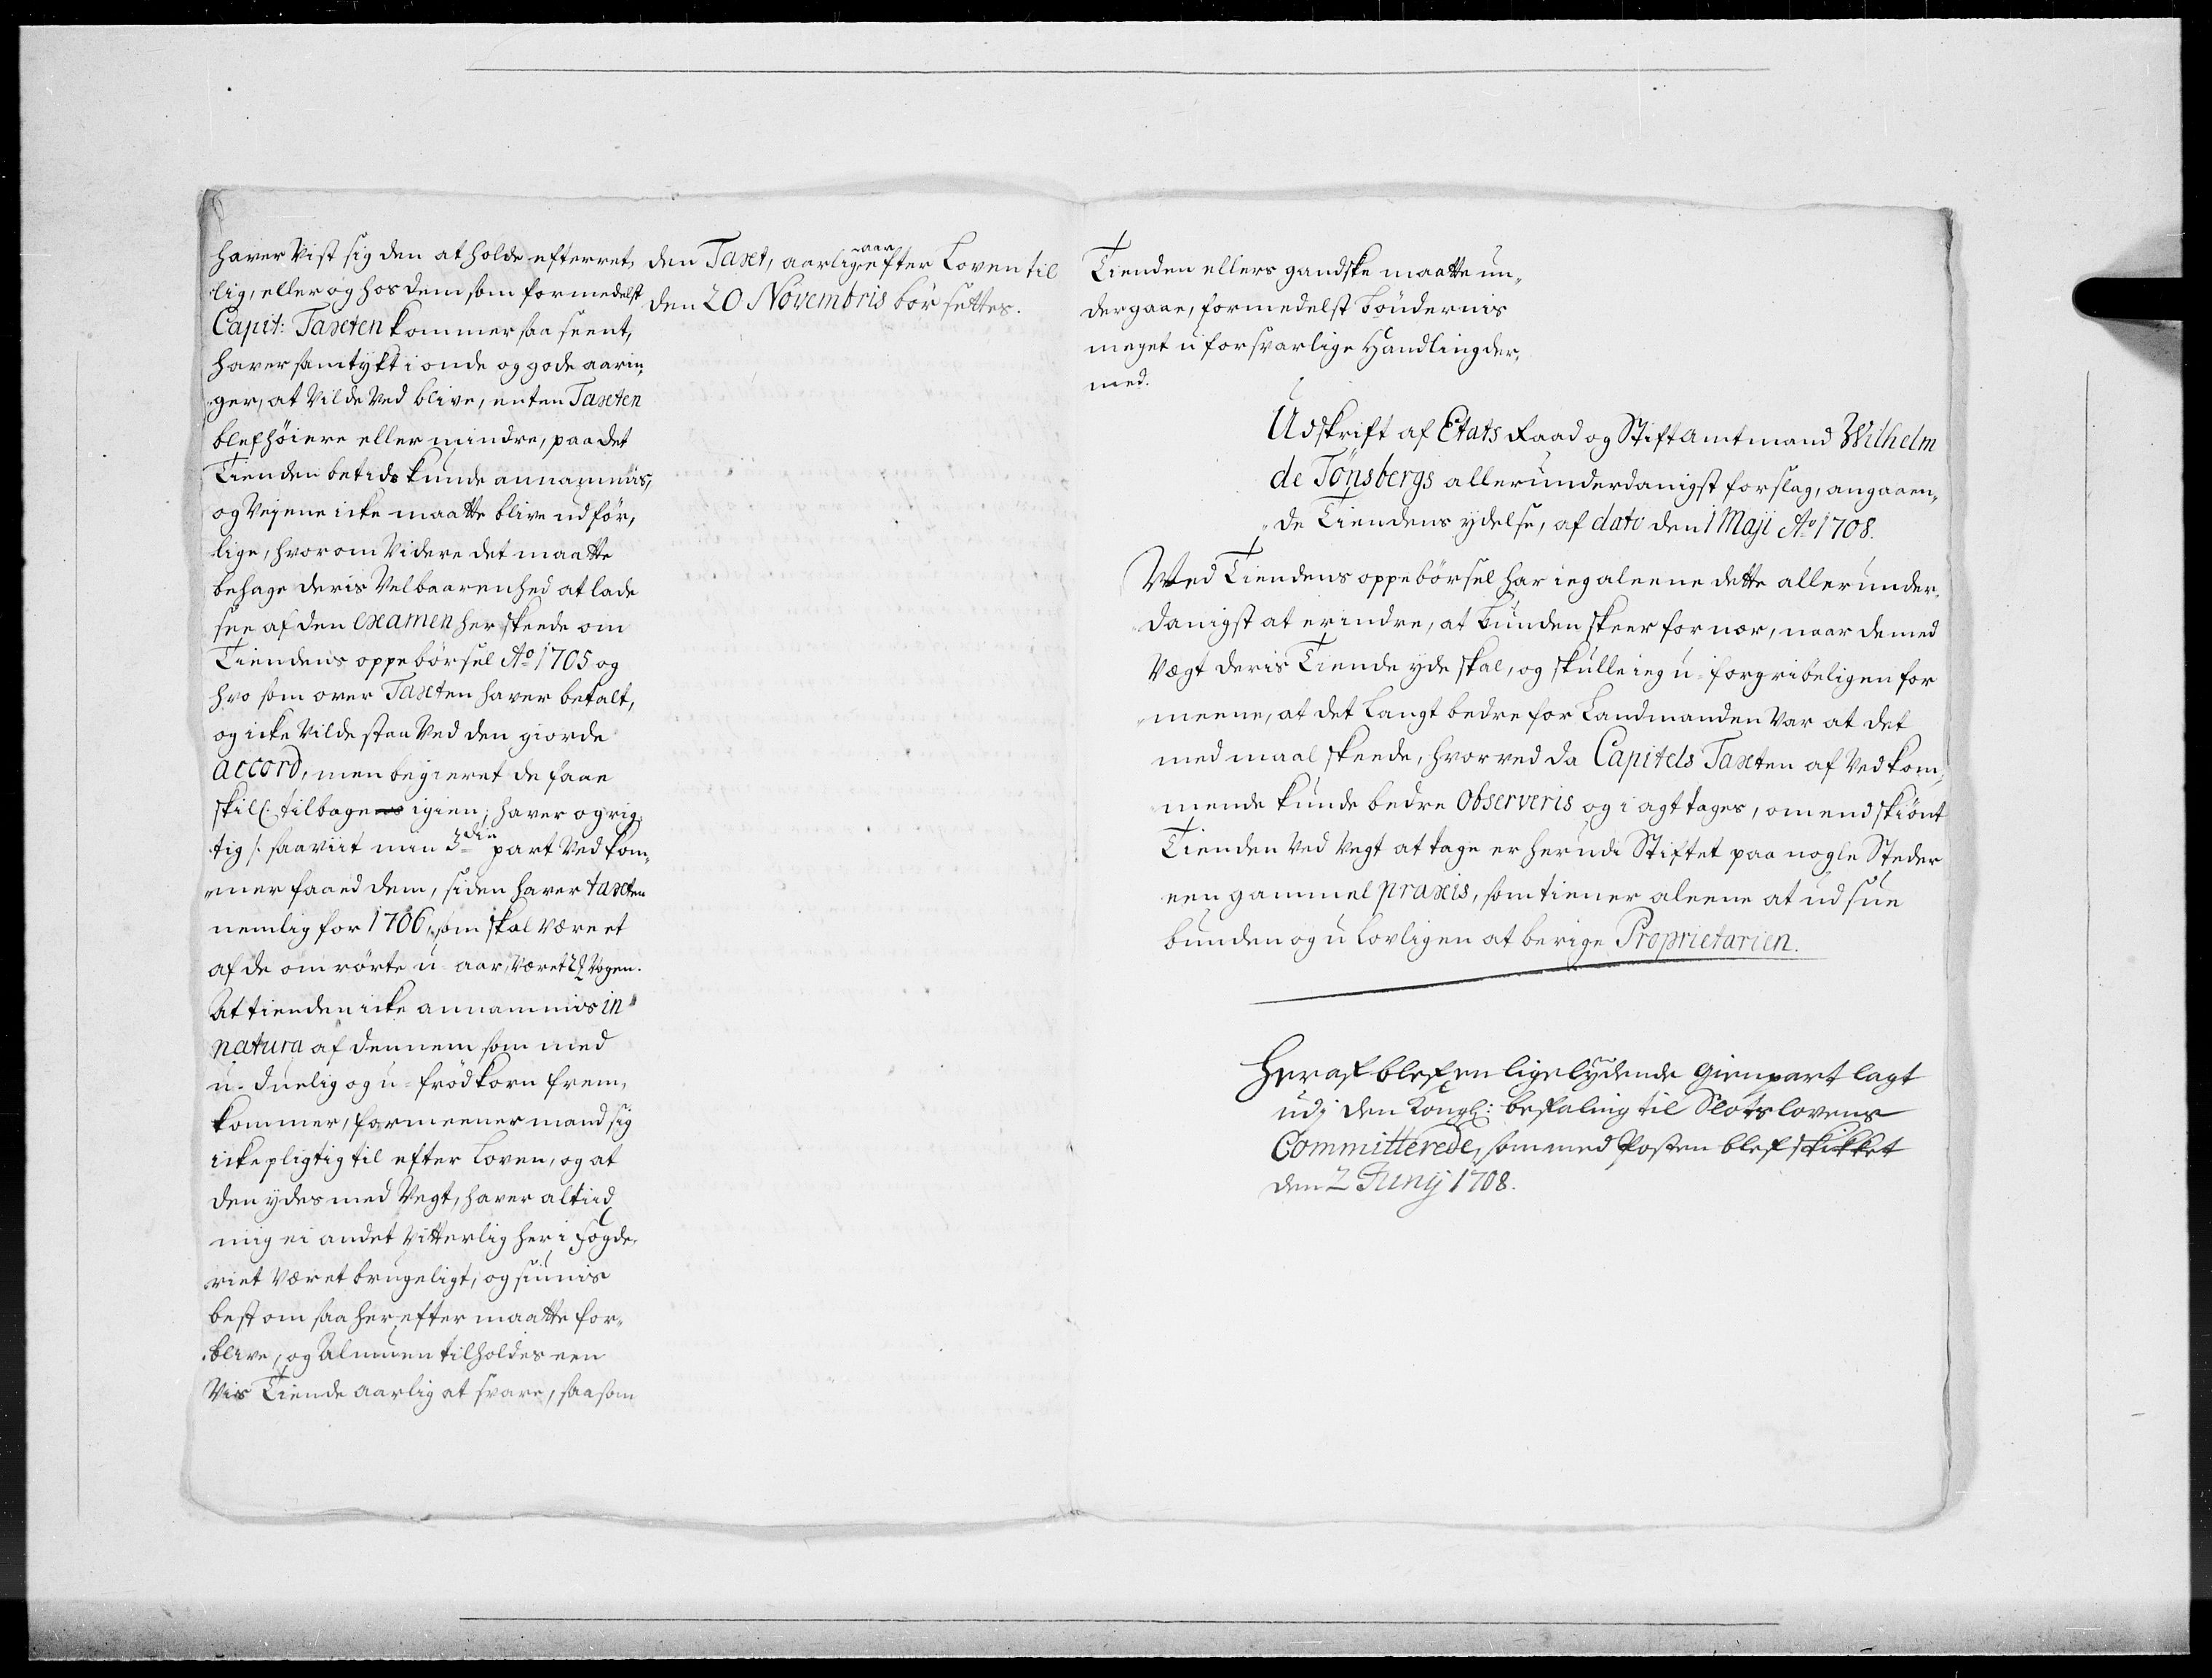 haver vist sig den at holde efterret,
lig, eller og hos dem som formedelst
Capit: Taxten kommer saa seent,
haver samtykt i onde og gode aarin,
ger, at vilde ved blive, enten Taxten
blef höiere eller mindre, paa det
Tienden betids kunde annammis,
og Vejene icke maatte blive udför,
lige, hvorom Videre det maatte
behage deris Velbaarenhed at lade
see af den examen her skeede om
Tiendens oppebörsel Ao 1705 og
hvo som over Taxten haver betalt,
og icke vilde staa ved den giorde
accord, men begieret de faae
skill: tilbage igien; haver og rig,
tig /: saaviit min 3die part ved kom,
mer faaed dem, siden haver taxten
nemlig for 1706, som skal være et
af de omrörte u-aar, været Vogen.
At tienden icke annammis in
natura af dennem som med
u-duelig og u-frödkorn frem,
kommer, formeener mand sig
icke pligtig til efter Loven, og at
den ydes med Vegt, haver altiid
mig ei andet vitterlig her i fogde,
riet været brugeligt, og siunis
best om saa herefter maatte for,
blive, og Almuen tilholdes een
Vis Tiende aarlig at svare, saasom
den Taxt, aarlig efter Loven til
den 20 Novembris bör settes.
Tienden ellers gandske maatte un,
dergaae, formedelst Böndernis
meget uforsvarlige Handling der,
med.
Udskrift af Etats Raad og Stiftamtmand Wilhelm
de Tönsbergs allerunderdanigst forslag, angaaen,
de Tiendens ydelse, af dato den 1 Maji Ao 1708.
Wed Tiendens oppebörsel har ieg aleene dette allerunder,
danigst at erindre, at Bunden skeer for nær, naar de med
Vægt deris Tiende yde skal, og skulle ieg u-forgribeligen for
meene, at det langt bedre for Landmanden var at det
med maal skeede, hvorved da Capitels Taxten af Vedkom,
mende kunde bedre Observeris og i agt tages, omendskiönt
Tienden ved Vegt at tage er herudi Stiftet paa nogle Steder
een gammel praxis, som tiener aleene at udsue
bunden og ulovligen at berige Proprietarien.
Heraf blef en ligelydende Gienpart lagt
udj den Kongl: befaling til Slotslovens
Committerede, som med Posten blef skikket
den 2 Junij 1708.